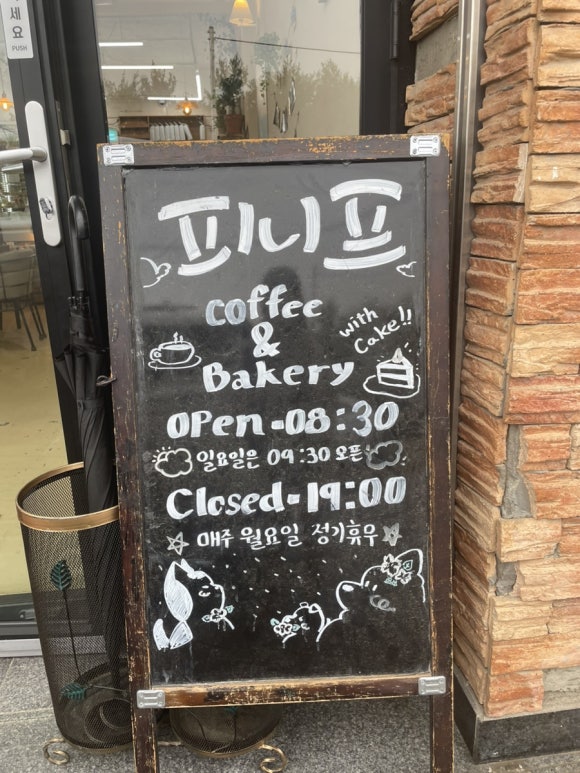 세요
PUSH
피니프
coffee
&
Bakery
with
Cake!!
OPen-08:30
일요일은 09:30 오픈
Closed-19:00
매주 월요일 정기휴우